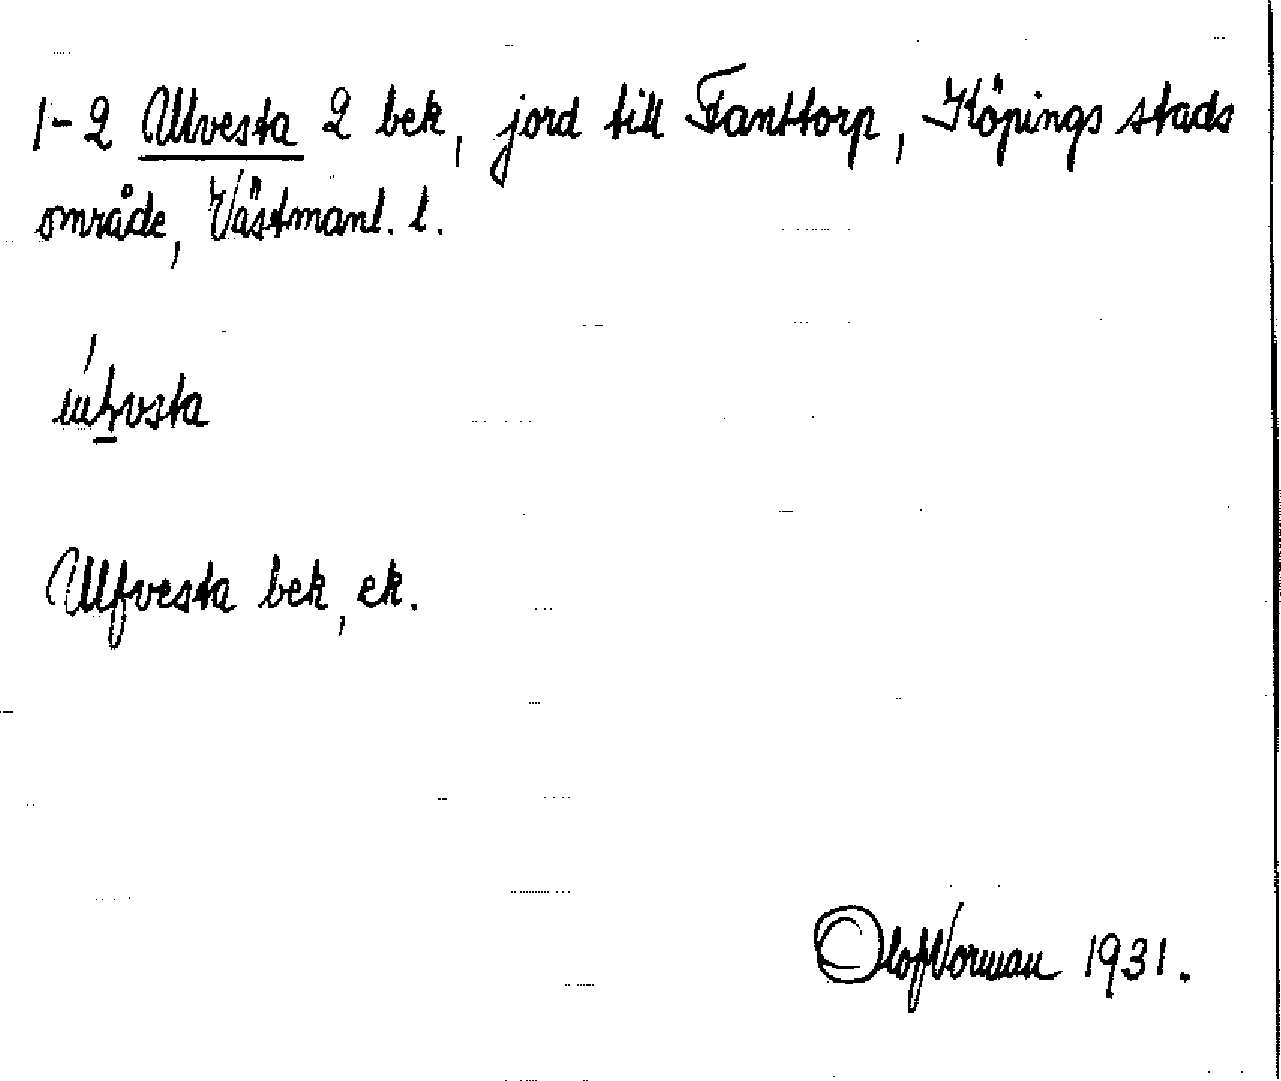 1-2 Ullvesta 2 bek, jord till Fanttorp, Köpings stads
område, Västmanl. l.
Ullfvesta bek, ek.
Olof Norman 1931.